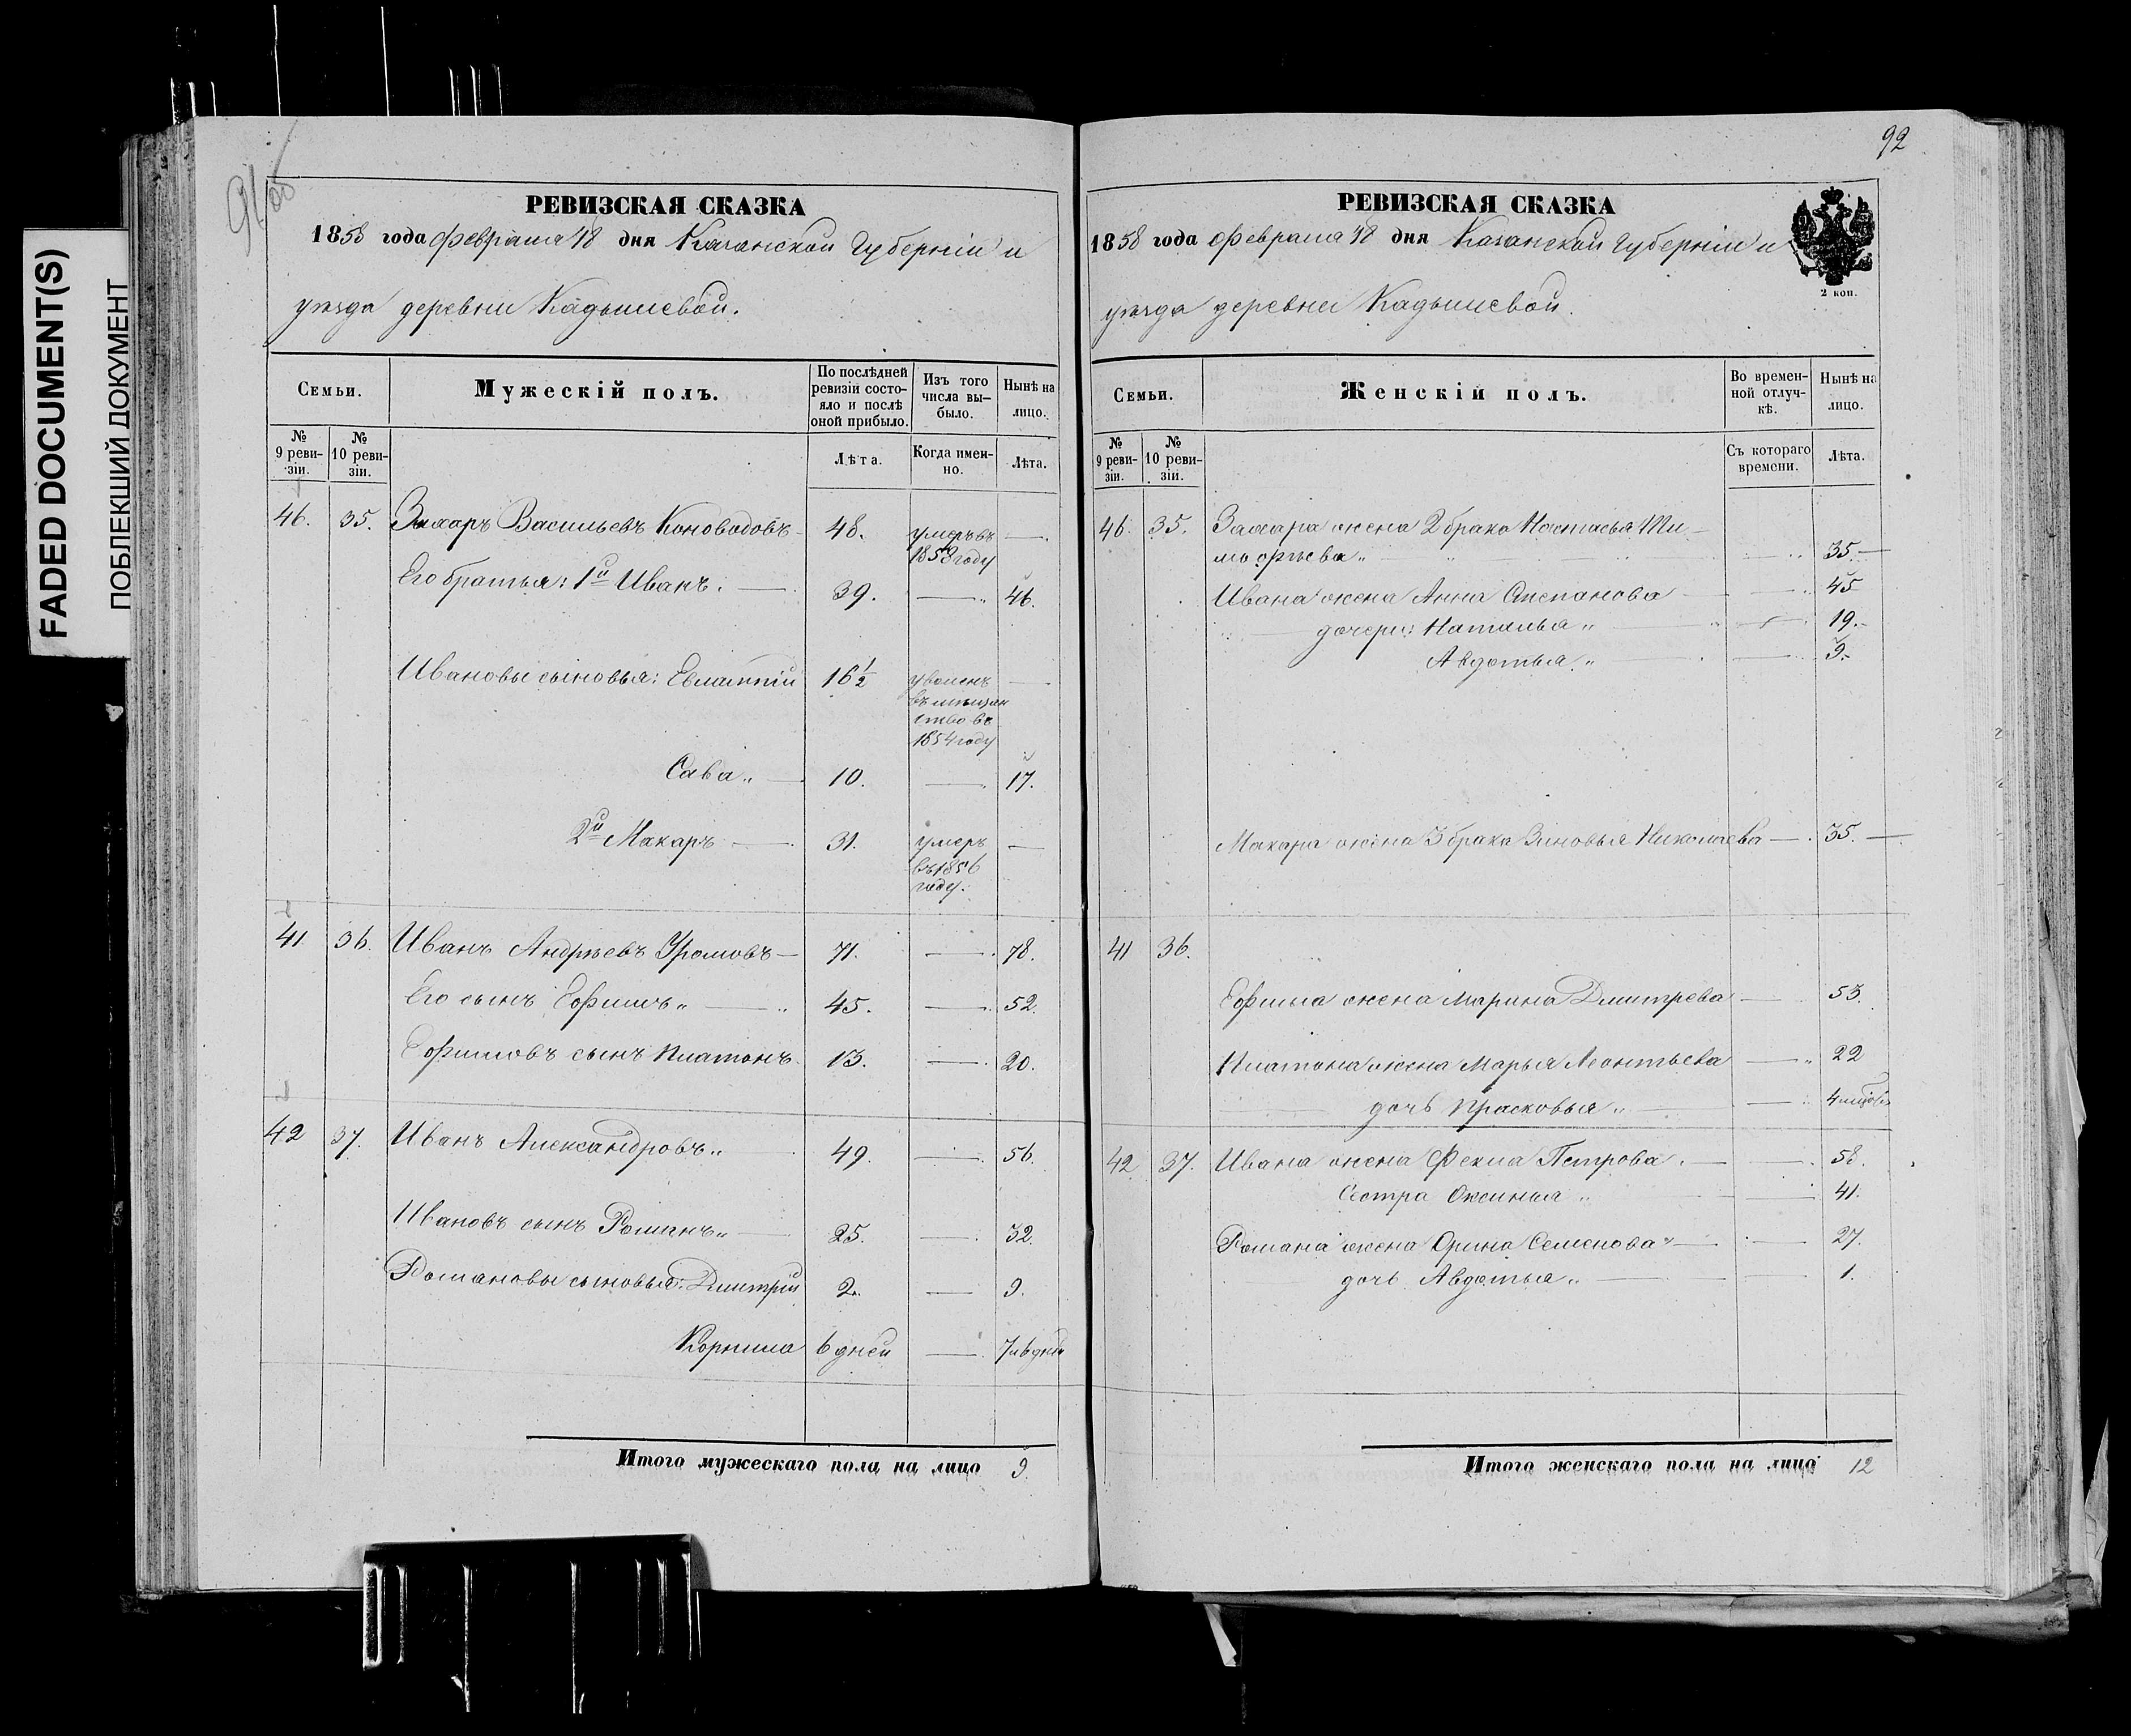 FADED DOCUMENT(S)
ПОБЛЕКШИЙ ДОКУМЕНТ
РЕВИЗСКАЯ СКАЗКА
1858 года Февраля 18 дня Казанской Губерніи и
уѣзда деревни Кадышевой.
Семьи.
Мужескій полъ.
По послѣдней ревизіи состояло и послѣ оной прибыло.
Изъ того числа выбыло.
Нынѣ на лицо.
№ 9 ревизіи.
№ 10 ревизіи.
Лѣта.
Когда именно.
Лѣта.
46. 35. Захаръ Васильевъ Коноводовъ 48. умеръ въ 1858 году —
Его братья: 1й Иванъ. — 39. — 46.
Ивановы сыновья: Евлампій 16½ уволенъ въ мѣщанство въ 1854 году —
Сава — 10. — 17.
2й Макаръ — 31. умеръ въ 1856 году. —
41 36. Иванъ Андрѣевъ — 71. — 78.
Его сынъ Ефимъ — 45. — 52.
Ефимовъ сынъ Платонъ 13. — 20.
42 37. Иванъ Александровъ 49. — 56.
Ивановъ сынъ Романъ — 25. — 32.
Романовы сыновья: Дмитрій 2. — 9.
Корнила 6 дней — 7 и 6 дней
Итого мужескаго пола на лицо 9.
92
РЕВИЗСКАЯ СКАЗКА
1858 года Февраля 18 дня Казанской Губерніи и
2 коп.
уѣзда деревни Кадышевой.
Семьи.
Женскій полъ.
Во временной отлучкѣ.
Нынѣ на лицо.
№ 9 ревизіи.
№ 10 ревизіи.
Съ котораго времени.
Лѣта.
46. 35. Захара жена 2 брака Настасья Ти-
мофѣева — 35. —
Ивана жена Анна Степанова — 45
дочери: Наталья — 19.
Авдотья — 9.
Макара жена 3 брака Зиновья Николаева — 35. —
41 36.
Ефима жена Марина Дмитрева — 53.
Платона жена Марья Леонтьева — 22
дочь Прасковья — 4
42 37. Ивана жена Фекла Петрова. — 58.
Сестра Оксинья — 41.
Романа жена Орина Семенова — 27.
дочь Авдотья — 1.
Итого женскаго пола на лицо 12